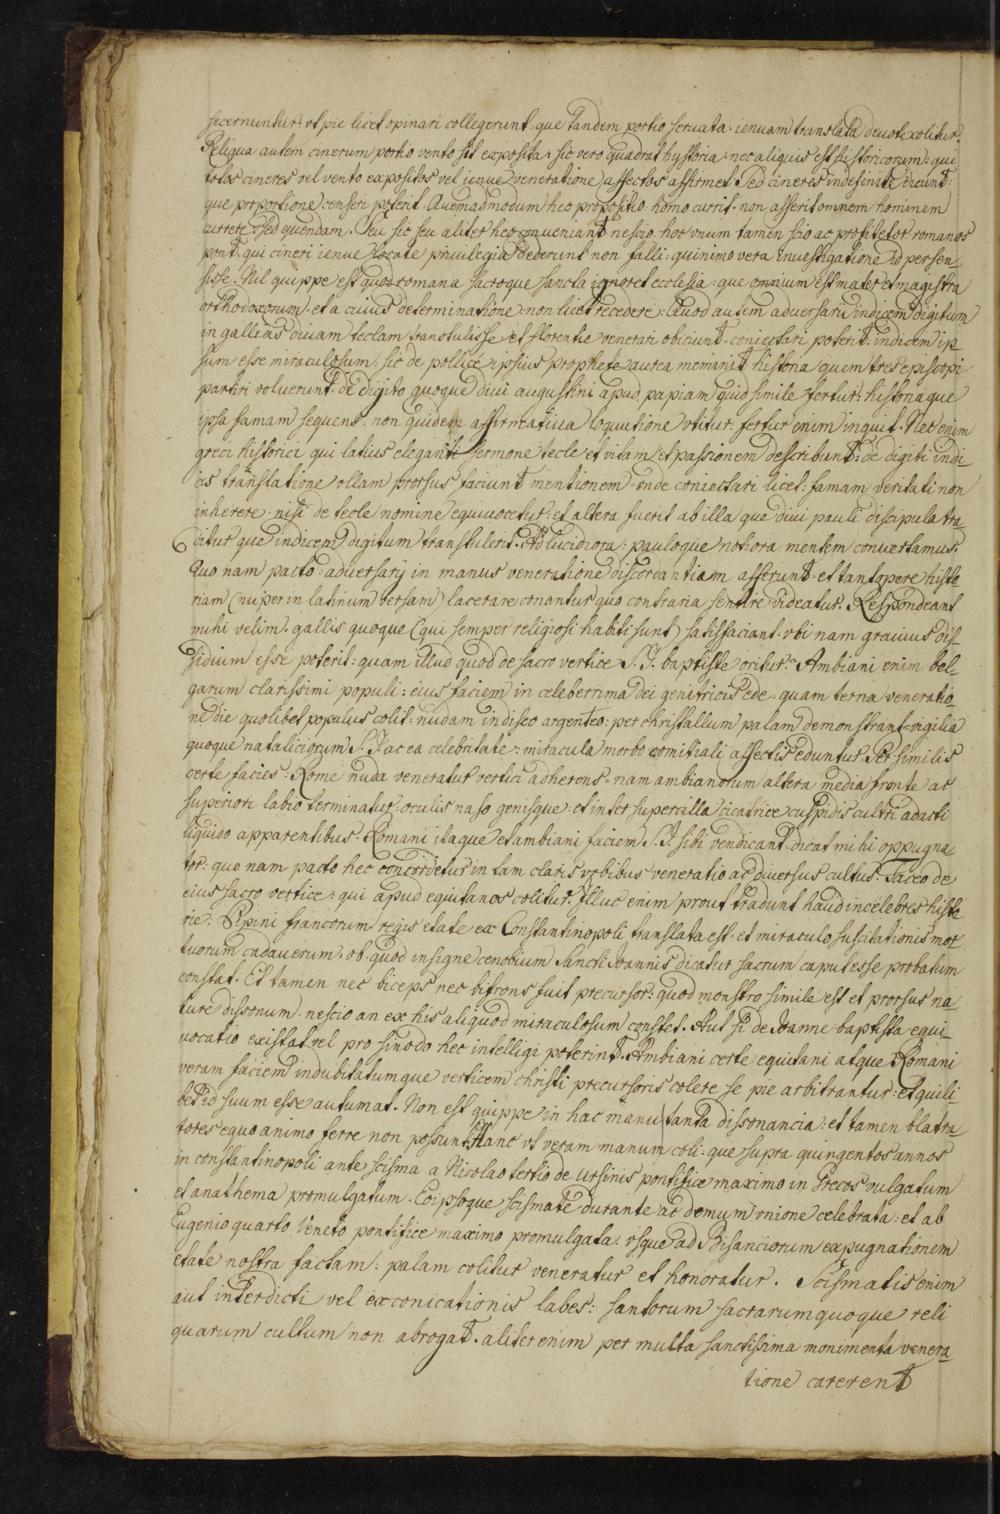 secernuntur: ut pie licet opinari collegerunt: que tandem portio servata: ienuam translata devote colitur.
Religua autem cinerum portio vento sit exposita: sic vero quadrat hystoria: nec aliquis est historicorum: qui
totos cineres vel vento expositos vel ienue veneratione affectos affirmet. Sed cineres indefinite dicunt:
que proportione censeri poterit. Quemadmodum hec propositio. homo currit. non asserit omnem hominem
currere sed quendam. Seu sic seu aliter hec conveniant nescio. hoc unum tamen scio ac profitetor romanos
pont. qui cineri ienue locate privilegia dederunt non falli: quinimo vera investigatione id persen
sisse. Nil quippe est quod romana sacroque sancta ignoret ecclesia: que omnium est mater et magistra
orthodoxorum. et a cuius determinatione non licet recedere. Quod autem adversarii indicem digitum
in gallias divam teclam transtulisse et florentie venerari obiciunt. coniectari poterit. indicem ip
sum esse miraculosum. sic de pollice ipsius prophete aurea meminit historia quem tres episcopi
partiri voluerunt. de digito quoque divi augustini apud papiam quid simile fertur: historiaque
ipsa famam sequens. non quidem affirmativa loquutione utitur. fertur enim inquit. Nec enim
greci historici qui latius eleganti sermone tecle et vitam et passionem describunt: de digiti indi-
cis translatione ollam prorsus faciunt mentionem. unde coniectari licet: famam veritati non
inherere. nisi de tecle nomine equivocetur: et altera fuerit ab illa que divi pauli discipula tra
ditur que indicem digitum transtulerit. Ad lucidiora: pauloque notiora mentem convertamus.
Quo nam pacto: adversarij in manus veneratione discordantiam asserunt. et tantopere histo
riam (nuper in latinum versam) lacerare conantur quo contraria sentire videatur. Respondeant
mihi velim. gallis quoque (qui semper religiosi habiti sunt) satisfaciant. ubi nam gravius dis
sidium esse poterit: quam illud quod de sacro vertice S. J. baptiste oritur. Ambiani enim bel-
garum clarissimi populi: eius faciem in celeberrima dei genitricis ede. quam terna veneratio
ne die quolibet populus colit. nudam in disco argenteo: per christallum palam demonstrant. vigilia
quoque nataliciorum S. J. ac ea celebritate: miracula morbo comitiali affectis eduntur. Per similis
certe facies. Rome nuda veneratur vertici adherens. nam ambianorum altera media fronte ac
superiori labio terminatur. oculis naso genisque: et inter supercilla cicatrice cuspidis cultri adacti
liquido apparentibus. Romani itaque et ambiani faciem. S. J. sibi vendicant. dicat mihi oppugna
tor: quo nam pacto hec concordetur in tam claris urbibus veneratio ac diversus cultus. Taceo de
eius sacro vertice: qui apud equitanos colitur. Illuc enim prout tradunt haud incelebres histo
rie. Pipini francorum regis etate ex Constantinopoli translata est. et miraculo suscitationis mor
tuorum cadaverum. ob quod insigne cenobium Sancti Joannis dicatur sacrum caput esse probatum
constat. Et tamen nec biceps nec bifrons fuit precursor: quod monstro simile est et prorsus na
ture dissonum. nescio an ex his aliquod miraculosum constet. Aut si de Joanne baptista equi-
vocatio existat vel pro sinodo hec intelligi poterint. Ambiani certe equitani atque Romani
veram faciem indubitatumque verticem christi precursoris colere se pie arbitrantur: et quili
bet id suum esse autumat. Non est quippe in hac manu tanta dissonancia: et tamen blatra-
tores equo animo ferre non possunt. Hanc ut veram manum coli. que supra quingentos annos
in constantinopoli ante scisma a Nicolao tertio de ursinis pontifice maximo in Grecos vulgatum
et anathema promulgatum. Eoipsoque scismate durante ac demum unione celebrata: et ab
Eugenio quarto Veneto pontifice maximo promulgata. usque ad Bisanciorum expugnationem
etate nostra factam: palam colitur veneratur et honoratur. Scismatis enim
aut interdicti vel exconicationis labes: santorum sacrarumquoque reli
quarum cultum non abrogat. aliter enim per multa sanctissima monimenta venera
tione carerent